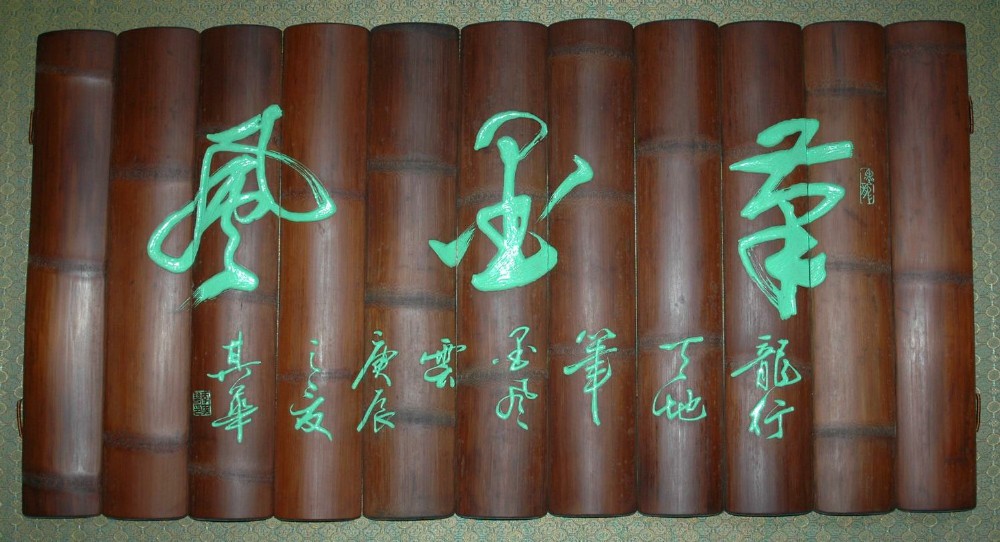 筆墨風
龍行
天地
筆
墨風
雲
庚辰
之夏
其華